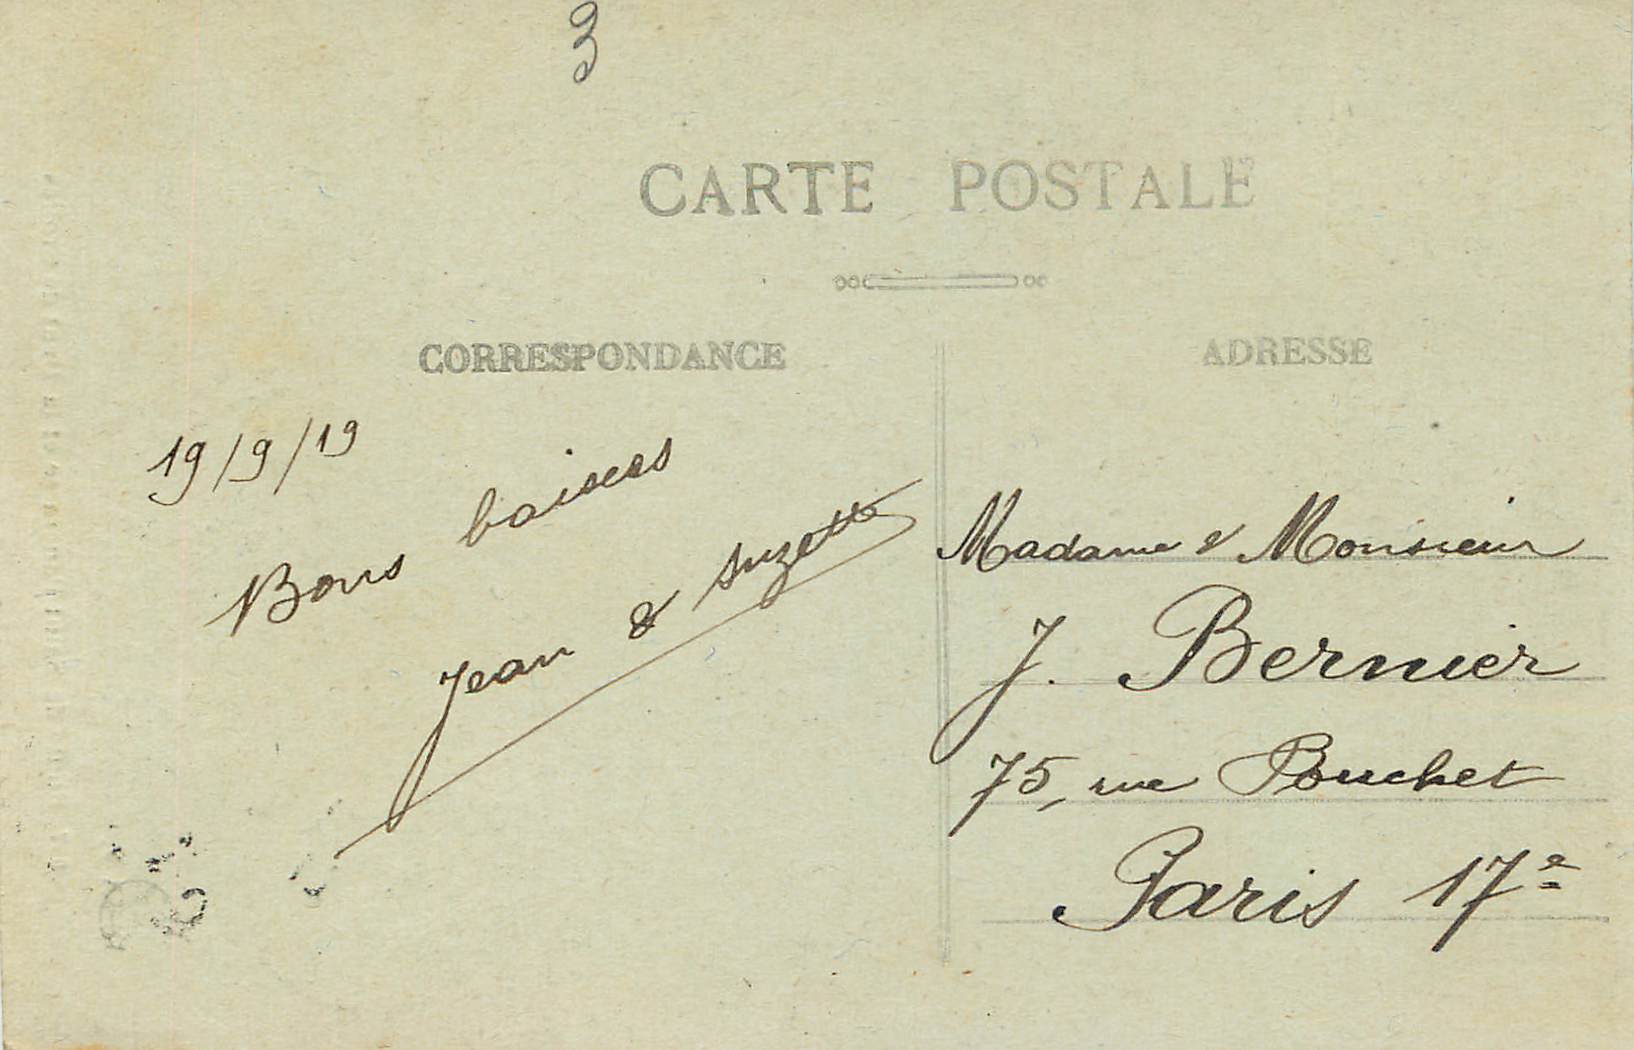 3
CARTE POSTALE
CORRESPONDANCE
19/9/19
Bons baisers
Jean & Suzette
ADRESSE
Madame & Monsieur
J. Bernier
75, rue Pouchet
Paris 17e